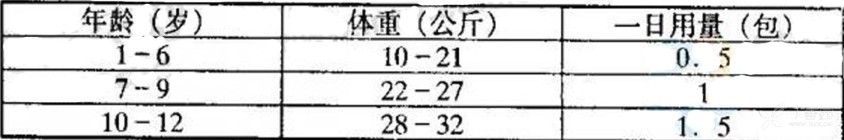 年龄（岁） 体重（公斤） 一日用量（包）
1－6 10－21 0. 5
7－9 22－27 1
10－12 28－32 1. 5